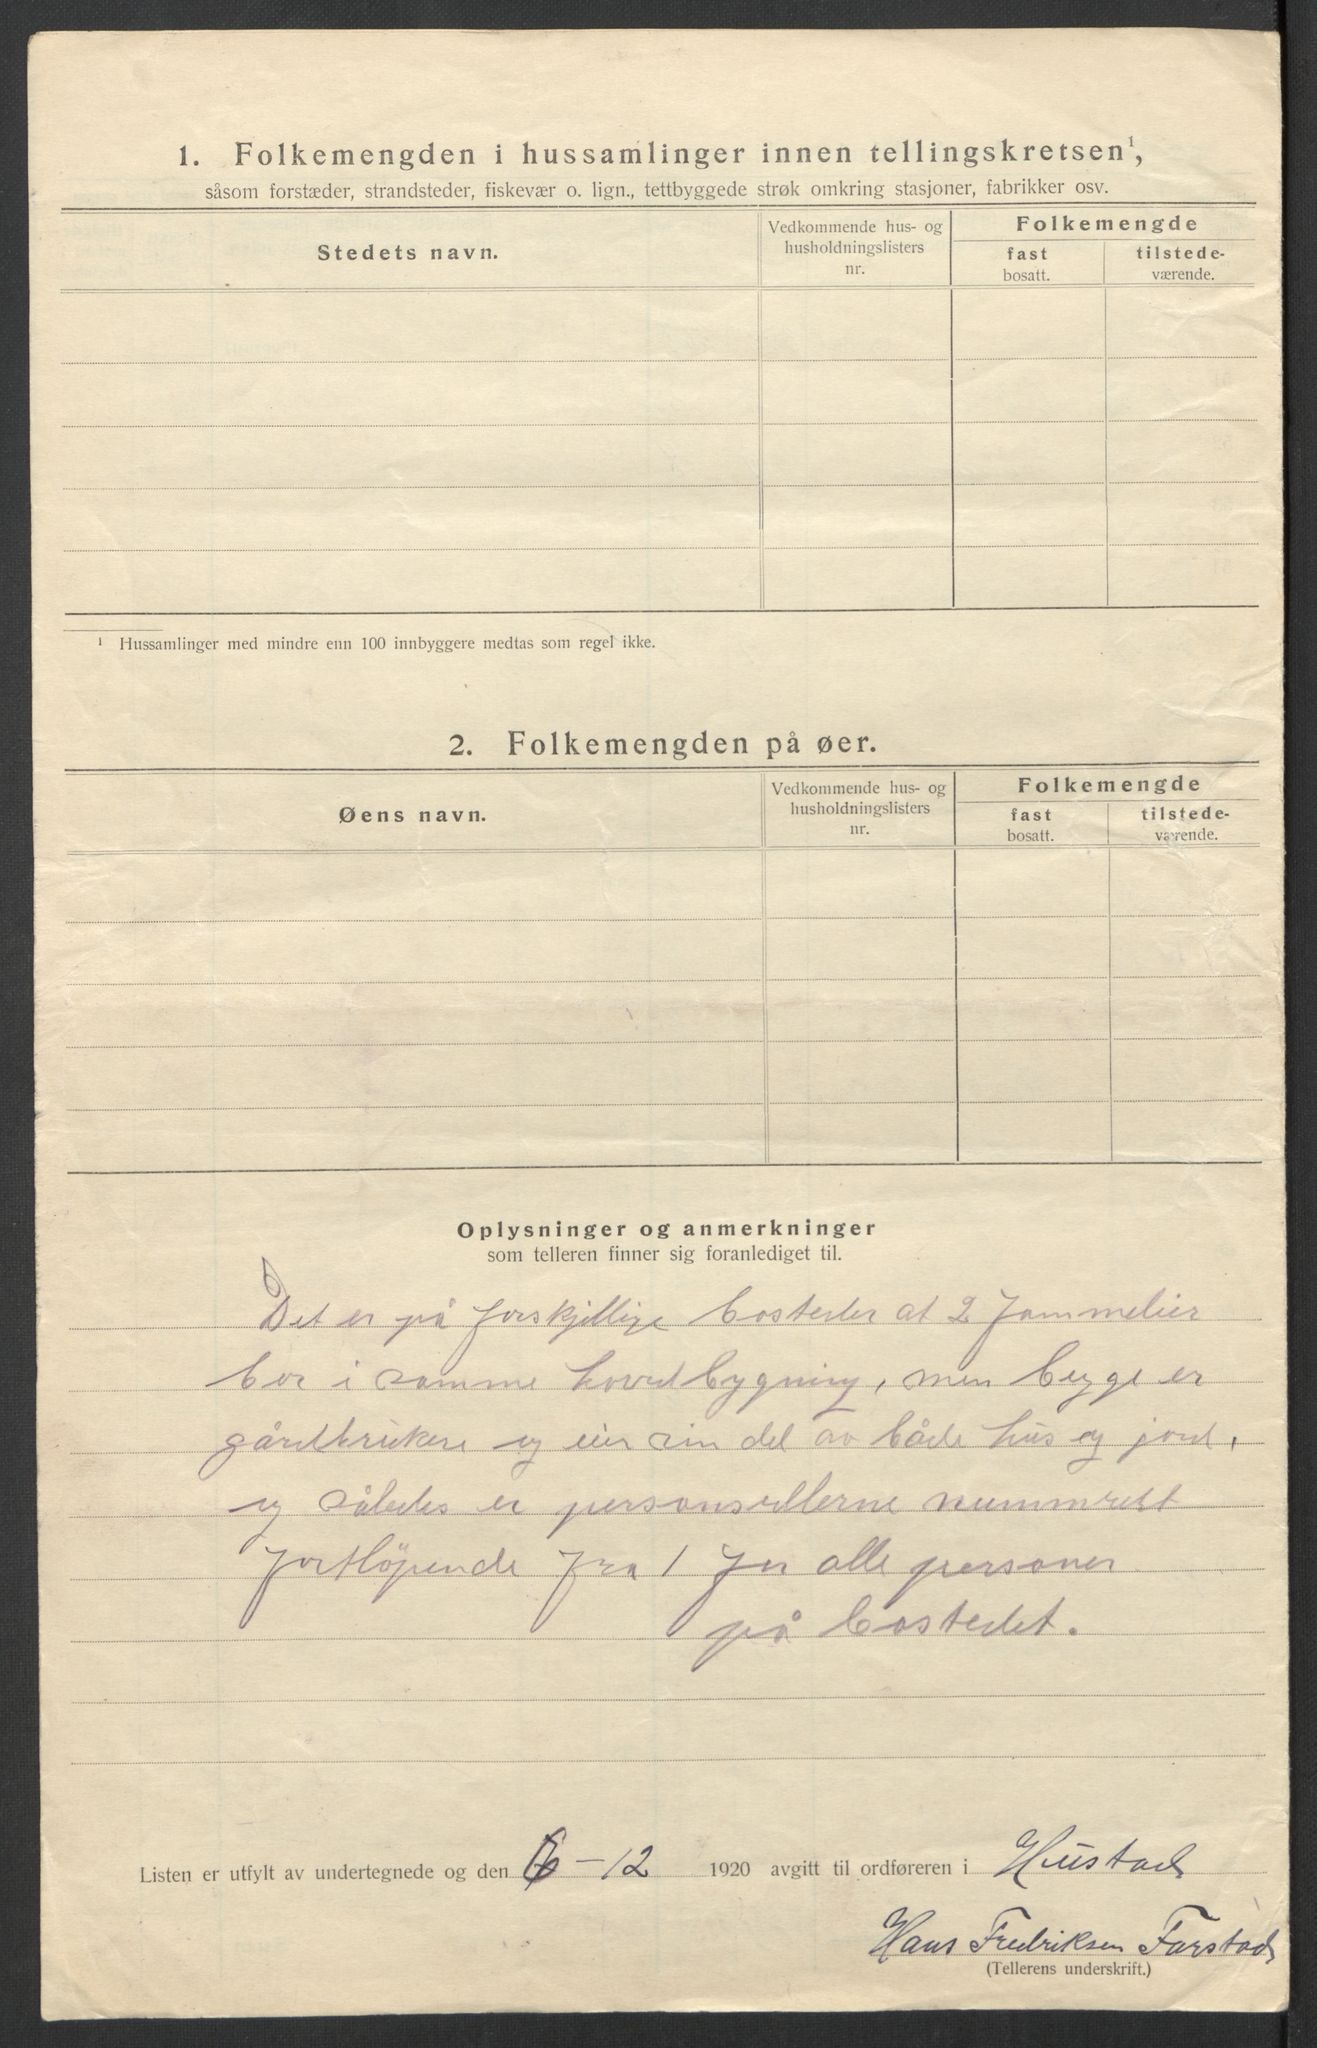 1. Folkemengden i hussamlinger innen tellingskretsen¹,
såsom forstæder, strandsteder, fiskevær o. lign., tettbyggede strøk omkring stasjoner, fabrikker osv.
Stedets navn.
Vedkommende hus- og
husholdningslisters
nr.
Folkemengde
fast
bosatt.
tilstede-
værende.
¹ Hussamlinger med mindre enn 100 innbyggere medtas som regel ikke.
2. Folkemengden på øer.
Øens navn.
Vedkommende hus- og
husholdningslisters
nr.
Folkemengde
fast
bosatt.
tilstede-
værende.
Oplysninger og anmerkninger
som telleren finner sig foranlediget til.
Det er på forskjellige bosteder at 2 fammelier
bor i samme hovedbygning, men begge er
gårdbrukere og eier sin del av både hus og jord,
og således er personsedlerne nummrett
fortløpende fra 1 for alle personer
på bostedet.
Listen er utfylt av undertegnede og den 6-12 1920 avgitt til ordføreren i Hustad
Hans Fredriksen Farstad
(Tellerens underskrift.)